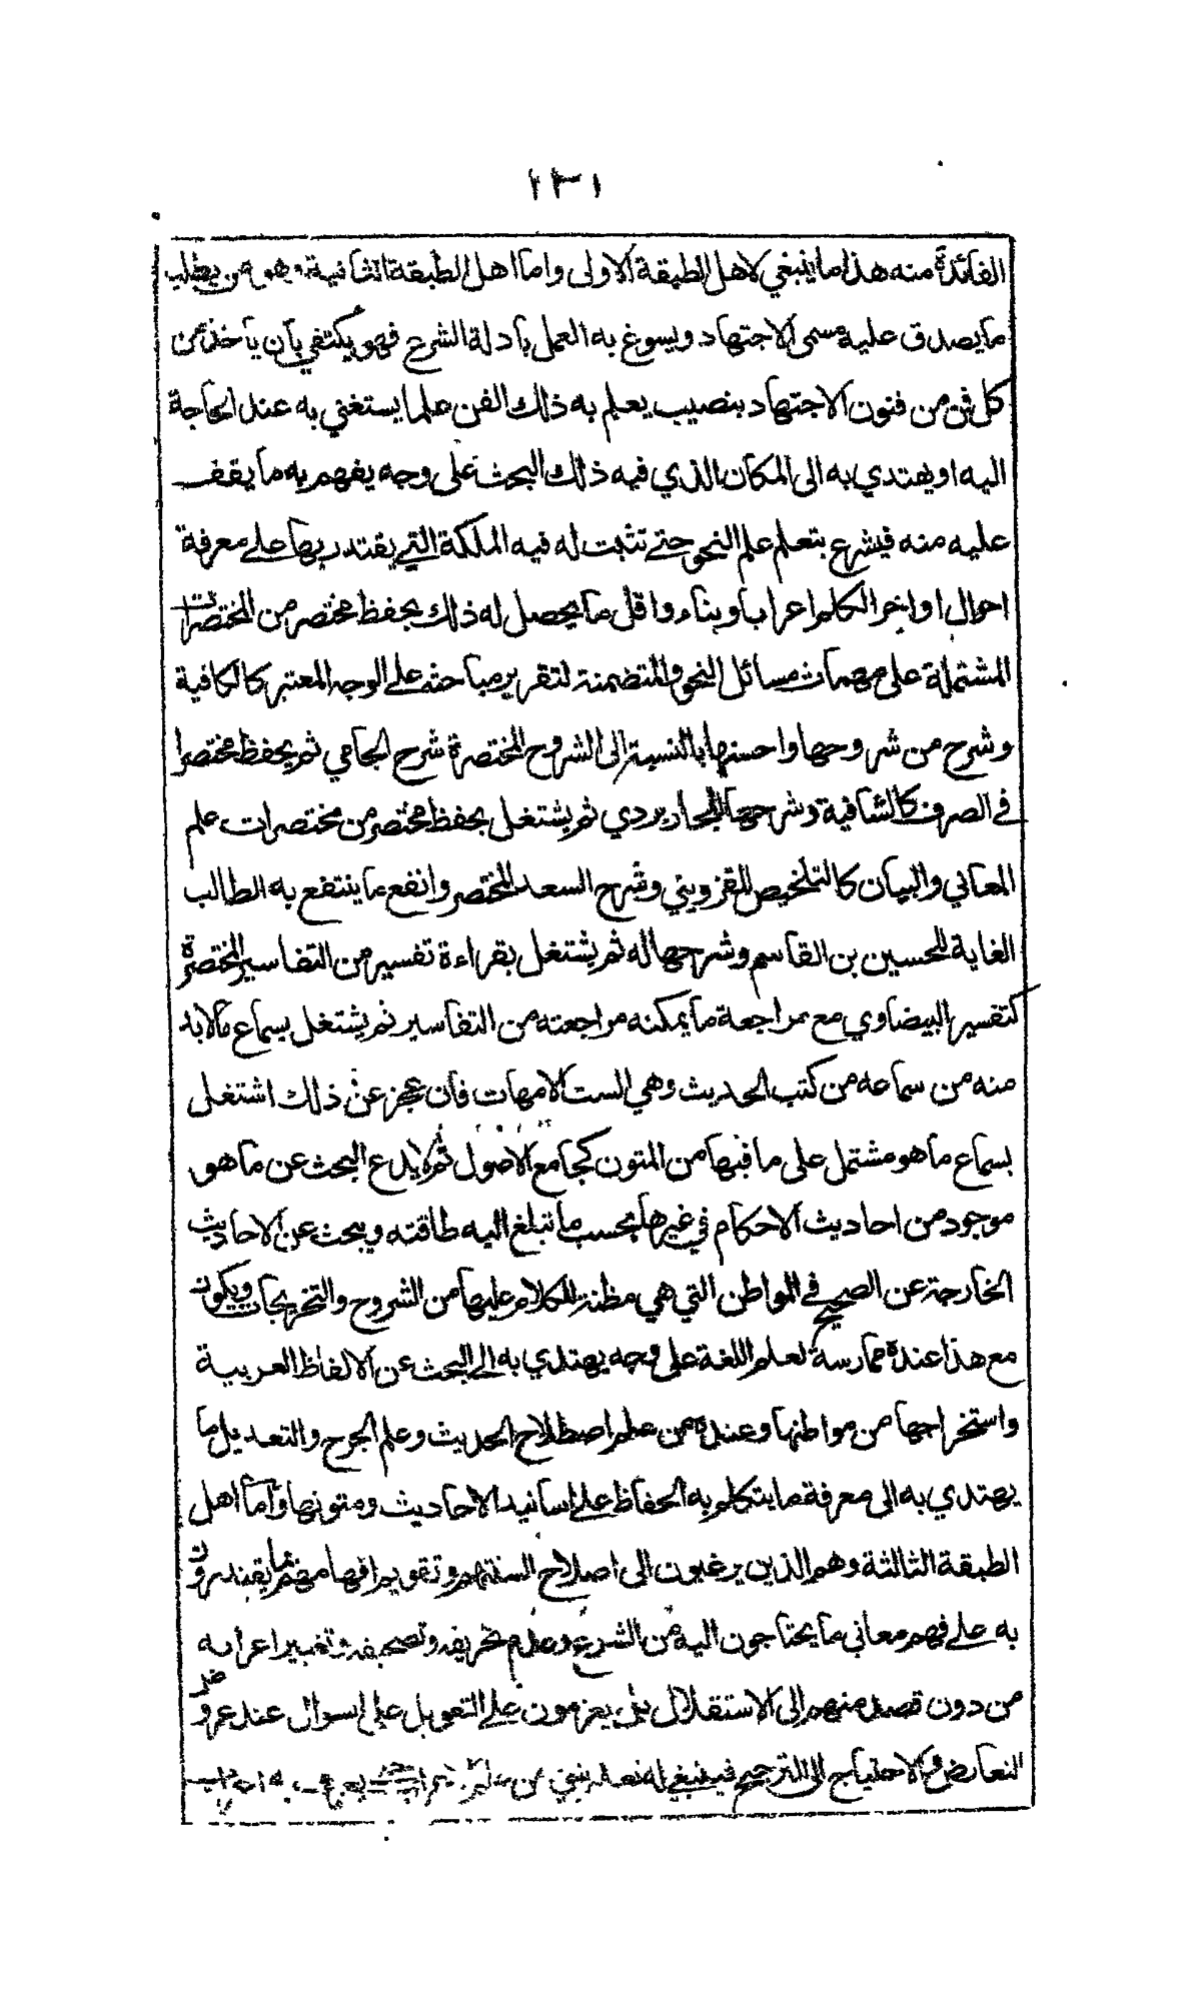 ١٣١
الفائدة منه هذا ما ينبغي لاهل الطبقة الاولى واما اهل الطبقة الثانية وهو من يطلب
ما يصدق عليه مسمى الاجتهاد ويسوغ به العمل بادلة الشرع فهو يكتفي بان ياخذ من
كل فن من فنون الاجتهاد بنصيب يعلم به ذلك الفن علما يستغني به عند الحاجة
اليه او يهتدي به الى المكان الذي فيه ذلك البحث على وجه يفهم به ما يقف
عليه منه فيشرع بتعلم علم النحو حتى تثبت له فيه الملكة التي يقتدر بها على معرفة
احوال اواخر الكلم اعرابا وبناء واقل ما يحصل له ذلك بحفظ مختصر من المختصرات
المشتملة على مهمات مسائل النحو والمتضمنة لتقرير مباحثه على الوجه المعتبر كالكافية
وشرح من شروحها واحسنها بالنسبة الى الشروح المختصرة شرح الجامي ثم يحفظ مختصرا
في الصرف كالشافية وشرحها للجاربردي ثم يشتغل بحفظ مختصر من مختصرات علم
المعاني والبيان كالتلخيص للقزويني وشرح السعد المختصر وانفع ما ينتفع به الطالب
الغاية للحسين بن القاسم وشرحها له ثم يشتغل بقراءة تفسير من التفاسير المختصرة
كتفسير البيضاوي مع مراجعة ما يمكنه مراجعته من التفاسير ثم يشتغل بسماع مالابد
منه من سماعه من كتب الحديث وهي الست الامهات فان عجز عن ذلك اشتغل
بسماع ما هو مشتمل على ما فيها من المتون كجامع الاصول ثم لا يدع البحث عن ما هو
موجود من احاديث الاحكام في غيرها بحسب ما تبلغ اليه طاقته ويبحث عن الاحاديث
الخارجة عن الصحيح في المواطن التي هي مظنة للكلام عليها من الشروح والتخريجات ويكون
مع هذا عنده ممارسة لعلم اللغة على وجه يهتدي به الى البحث عن الالفاظ العربية
واستخراجها من مواطنها وعنده من علم اصطلاح الحديث وعلم الجرح والتعديل ما
يهتدي به الى معرفة ما يتكلم به الحفاظ على اسانيد الاحاديث ومتونها واما اهل
الطبقة الثالثة وهم الذين يرغبون الى اصلاح السنتهم وتقويم افهامهم بما يقتدرون
به على فهم معاني ما يحتاجون اليه من الشرع وعدم تحريفه وتصحيفه وتغيير اعرابه
من دون قصد منهم الى الاستقلال بل يعزمون على التعويل على السوال عند عروض
التعارض والاحتياج الى الترجيح فينبغي له